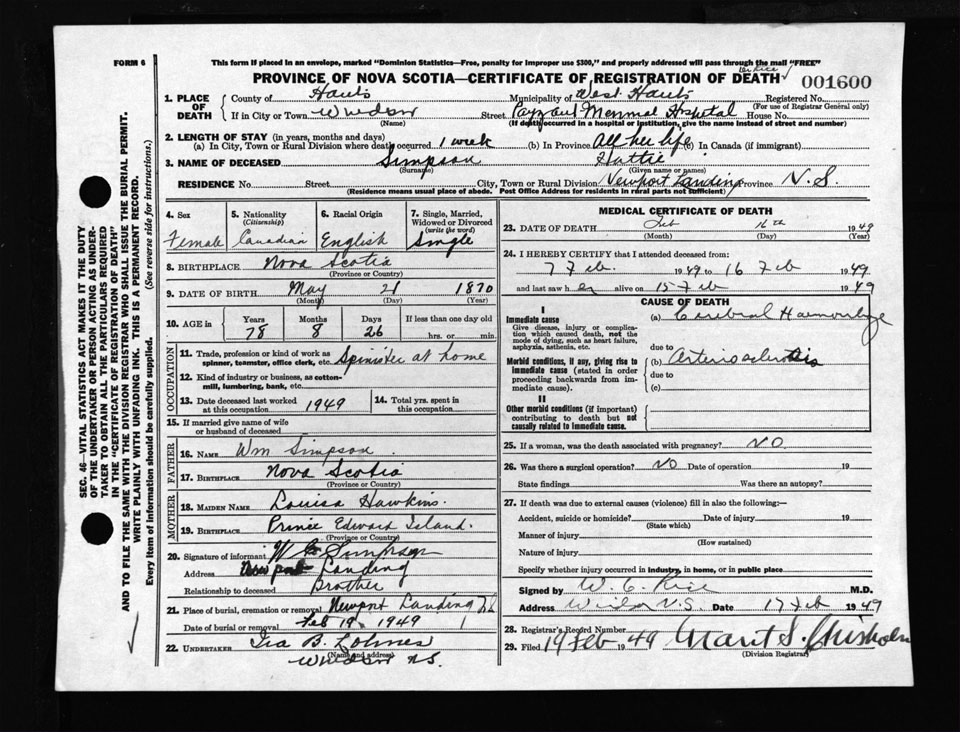 FORM 6
This form if placed in an envelope, marked "Dominion Statistics—Free, penalty for improper use $300," and properly addressed will pass through the mail "FREE"
PROVINCE OF NOVA SCOTIA—CERTIFICATE OF REGISTRATION OF DEATH
001600
1. PLACE OF DEATH
County of Hants Municipality of West Hants Registered No.
(For use of Registrar General only)
If in City or Town Windsor Street Payzant Memorial Hospital House No.
(Name) (If death occurred in a hospital or institution, give the name instead of street and number)
2. LENGTH OF STAY (in years, months and days)
(a) In City, Town or Rural Division where death occurred 1 week (b) In Province All her life (c) In Canada (if immigrant)
3. NAME OF DECEASED Simpson Hattie
(Surname) (Given name or names)
RESIDENCE No. Street City, Town or Rural Division Newport Landing Province N.S.
(Residence means usual place of abode. Post Office Address for residents in rural parts not sufficient)
4. Sex Female
5. Nationality (Citizenship) Canadian
6. Racial Origin English
7. Single, Married, Widowed or Divorced (write the word) Single
8. BIRTHPLACE Nova Scotia
(Province or Country)
9. DATE OF BIRTH May 21 1870
(Month) (Day) (Year)
10. AGE in Years Months Days If less than one day old
78 8 26 hrs. or min.
OCCUPATION
11. Trade, profession or kind of work as spinner, teamster, office clerk, etc. Spinster at home
12. Kind of industry or business, as cotton-mill, lumbering, bank, etc.
13. Date deceased last worked at this occupation 1949
14. Total yrs. spent in this occupation
15. If married give name of wife or husband of deceased
FATHER
16. NAME Wm Simpson
17. BIRTHPLACE Nova Scotia
(Province or Country)
MOTHER
18. MAIDEN NAME Louisa Hawkins.
19. BIRTHPLACE Prince Edward Island.
(Province or Country)
20. Signature of informant Simpson
Address Newport Landing
Relationship to deceased Brother
21. Place of burial, cremation or removal Newport Landing
Date of burial or removal Feb 19 1949
22. UNDERTAKER Ira B. Lohnes
(Name and address)
Windsor N.S.
MEDICAL CERTIFICATE OF DEATH
23. DATE OF DEATH Feb 16th 1949
(Month) (Day) (Year)
24. I HEREBY CERTIFY that I attended deceased from:
7 Feb. 1949 to 16 Feb 1949
and last saw her alive on 15 Feb 1949
CAUSE OF DEATH
I
Immediate cause
Give disease, injury or complication which caused death, not the mode of dying, such as heart failure, asphyxia, asthenia, etc.
(a) Cerebral Haemorrhage
due to
Morbid conditions, if any, giving rise to immediate cause (stated in order proceeding backwards from immediate cause).
(b) Arteriosclerosis
due to
(c)
II
Other morbid conditions (if important) contributing to death but not causally related to immediate cause.
25. If a woman, was the death associated with pregnancy? NO
26. Was there a surgical operation? NO Date of operation 19
State findings Was there an autopsy?
27. If death was due to external causes (violence) fill in also the following:—
Accident, suicide or homicide? Date of injury 19
(State which)
Manner of injury
(How sustained)
Nature of injury
Specify whether injury occurred in industry, in home, or in public place
Signed by W. C. M.D.
Address N.S. Date 17 Feb 1949
28. Registrar's Record Number
29. Filed 19 Feb 1949 Grant S. Chisholm
(Division Registrar)
SEC. 46—VITAL STATISTICS ACT MAKES IT THE DUTY
OF THE UNDERTAKER OR PERSON ACTING AS UNDER-
TAKER TO OBTAIN ALL THE PARTICULARS REQUIRED
IN THE "CERTIFICATE OF REGISTRATION OF DEATH"
AND TO FILE THE SAME WITH THE DIVISION REGISTRAR WHO SHALL ISSUE THE BURIAL PERMIT.
WRITE PLAINLY WITH UNFADING INK. THIS IS A PERMANENT RECORD.
Every item of information should be carefully supplied. (See reverse side for instructions.)